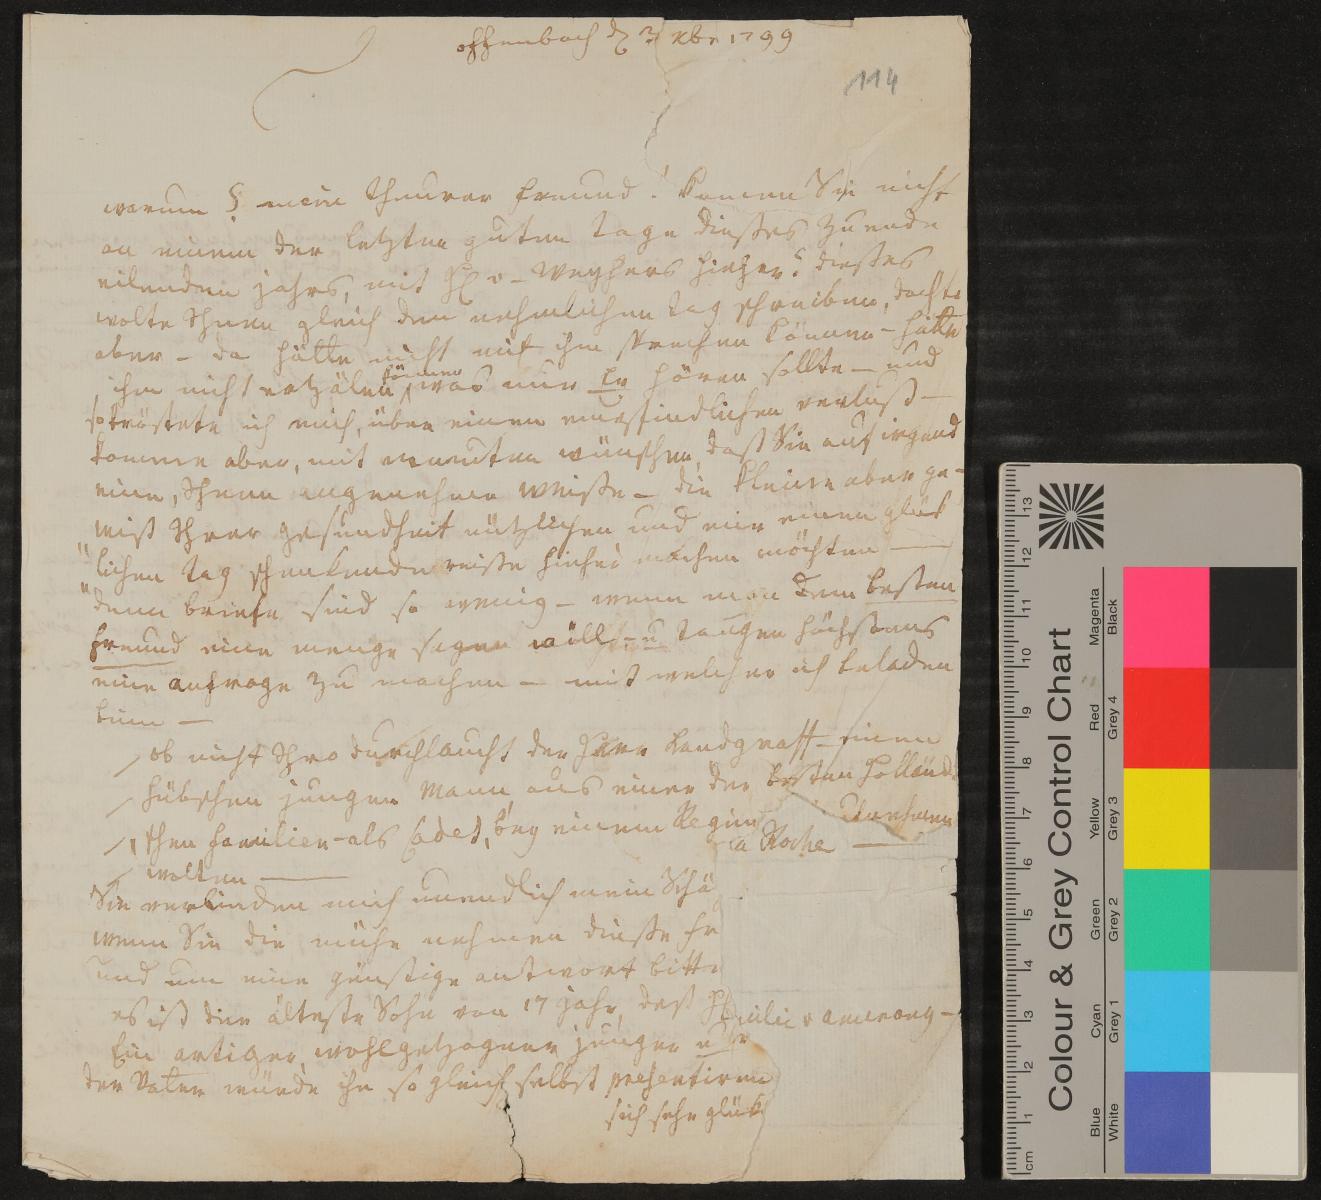 offenbach d 3 xbr 1799
114
warum § mein theurer freund! kamen Sie nicht
an einem der letzten guten tage dießes zu ende
eilenden jahrs, mit H v- Weyhers hieher? dießes
wolte Ihnen gleich den nehmlichen tag schreiben, dachte
aber – da hätte nicht mit ihm sprechen können – hätte
ihm nicht erzälen können, was nur Er hören sollte – und
so tröstete ich mich, über einen empfindlichen verlust –
komme aber, mit erneuten wünschen, daß Sie auf irgend
eine, Ihnen angenehme weiße – die kleine aber ge-
wiß Ihrer gesundheit nützlichen und mir einen glük
"lichen tag schenkende reiße hieher machen möchten —
"denn briefe sind so wenig – wenn man dem besten
freund eine menge sagen will – u taugen höchstens
eine anfrage zu machen – mit welcher ich beladen
binn —
ob nicht Ihro durchlaucht der Herr Landgraff – einen
hübschen jungen Mann aus einer der besten Holländi
schen familien – als Cadet, bey einem Regim annehmen
wolten —
a Roche —
Sie verbinden mich unendlich mein Schä
wenn Sie die mühe nehmen dieße
und um eine günstige antwort bitte
es ist der älteste Sohn von 17 jahr, deß
Ein artiger, wohlgezogner junger
der Vater würde ihn so gleich selbst presentiren
sich sehr glük